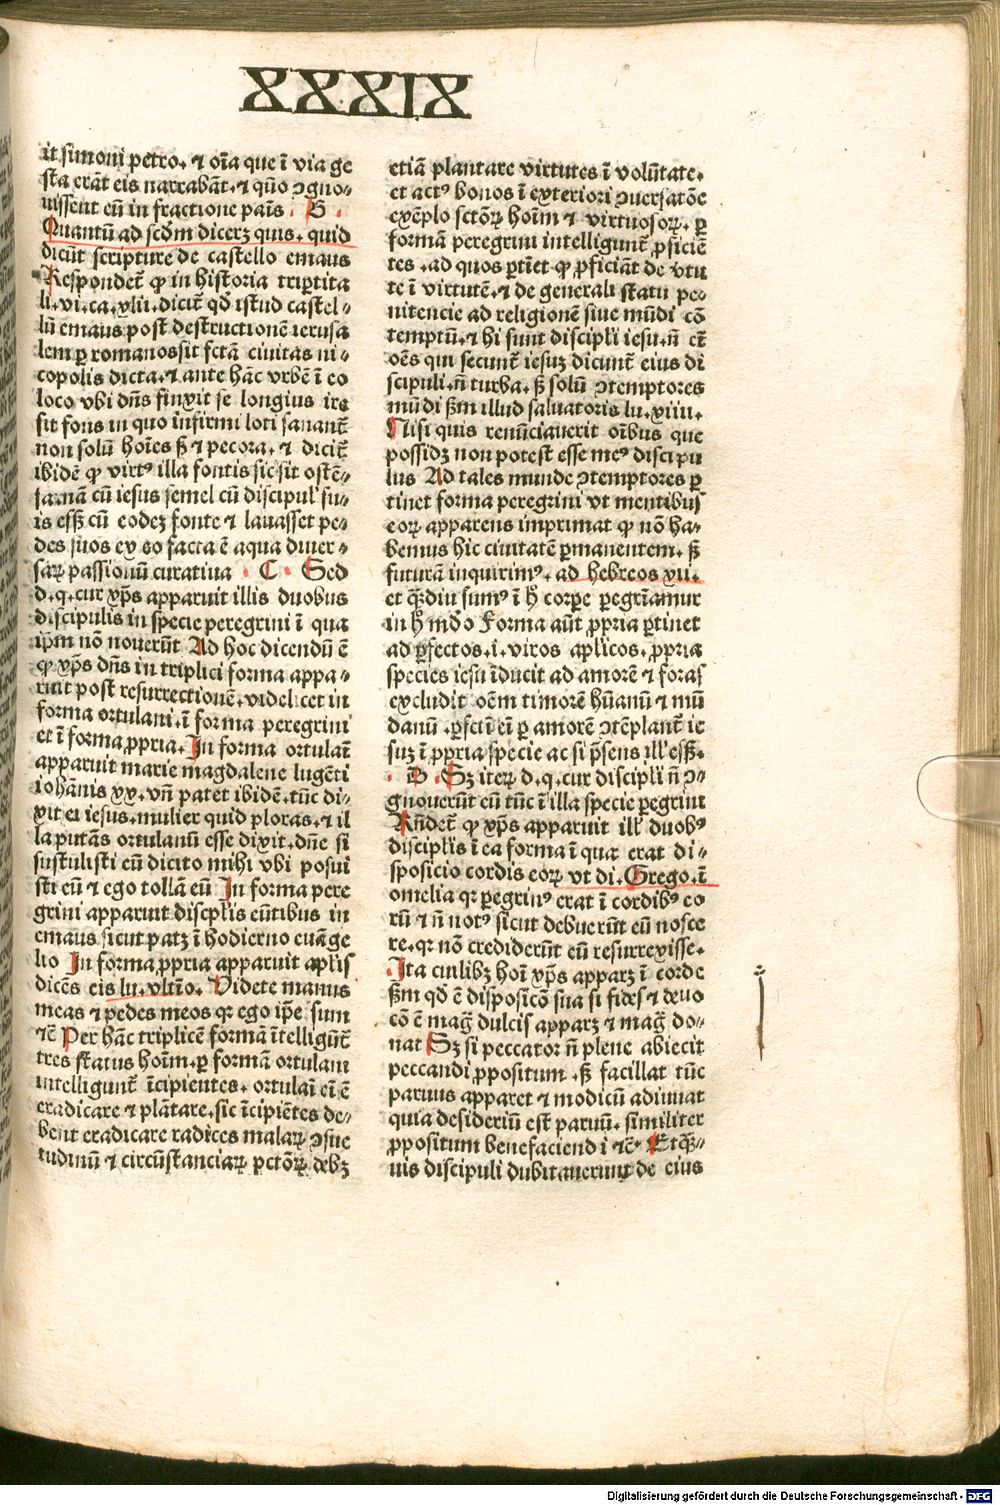 XXXIX
it simoni petro. ⁊ oīa que ī via ge
sta erāt eis narrabāt. ⁊ quō ꝯgno-
uissent eū in fractione panis. B.
Quantū ad scđm dicerꝫ quis. quid
dicūt scripture de castello emaus
Respondet̄ ꝙ in historia tripͬtita
li. vi. ca. xlii. dicit̄ qđ istud castel-
lū emaus post destructionē ierusa
lem ꝑ romanos sit fctā ciuitas ni-
copolis dicta. ⁊ ante hāc vrbē ī eo
loco vbi dn̄s finxit se longius ire
sit fons in quo infirmi loti sanant̄
non solū hoīes sꝫ ⁊ pecora. ⁊ dicit̄
ibidē ꝙ virtꝰ illa fontis sic sit ostē-
sa. nā cū iesus semel cū discipul' su-
is esset cū eodez fonte ⁊ lauasset pe-
des suos ex eo facta ē aqua diuer-
saꝝ passionū curatiua. C. Sed
d. q. cur xp̄s apparuit illis duobus
discipulis in specie peregrini ī qua
ipm̄ nō nouerūt Ad hoc dicendū ē
ꝙ xp̄s dn̄s in triplici forma appa-
ruit post resurrectionē. videlicet in
forma ortulani. ī forma peregrini
et ī forma ꝓpria. In forma ortulaī
apparuit marie magdalene lugēti
iohānis xx. vn̄ patet ibidē. tūc di-
xit ei iesus. mulier quid ploras. ⁊ il
la putās ortulanū esse dixit. dn̄e si
sustulisti eū dicito mihi vbi posui
sti eū ⁊ ego tollā eū In forma pere
grini apparuit discplis eūtibus in
emaus sicut patꝫ ī hodierno euāge
lio In forma ꝓpria apparuit apl̄is
dicēs eis lu. vltīo. Videte manus
meas ⁊ pedes meos qꝛ ego ip̄e sum
⁊c̄ Per hāc triplicē formā ītelligūt̄
tres status hoīm. ꝑ formā ortulani
intelligunt̄ īcipientes. ortulaī eī ē
eradicare ⁊ plātare. sic īcipiētes de-
bent eradicare radices malaꝝ ꝯsue
tudinū ⁊ circūstanciaꝝ pctōꝝ debꝫ
etiā plantare virtutes ī volūtate.
et actꝰ bonos ī exteriori ꝯuersatōe
exēplo sctōꝝ hoīm ⁊ virtuosoꝝ. ꝑ
formā peregrini intelligunt̄ ꝓficiē
tes. ad quos ꝑtīet ꝙ ꝓficiāt de vtu
te ī virtutē. ⁊ de generali statu pe-
nitencie ad religionē siue mūdi cō
temptū. ⁊ hi sunt discipli iesu. n̄ et̄
oēs qui secunt̄ iesuz dicunt̄ eius di
scipuli. n̄ turba. sꝫ solū ꝯtemptores
mūdi sꝫm illud saluatoris lu. xiiii.
Nisi quis renūciauerit oībus que
possidꝫ non potest esse meꝰ discipu
lus Ad tales munde ꝯtemptores ꝑ
tinet forma peregrini vt mentibus
eoꝝ apparens imprimat ꝙ nō ha-
bemus hic ciuitatē ꝑmanentem. sꝫ
futurā inquirimꝰ. ad hebreos xii.
et qm̄diu sumꝰ ī h̄ corpe ꝑegrīamur
in h̄ mđo Forma aūt ꝓpria ꝑtinet
ad ꝑfectos. i. viros aplicos. ꝓpria
species iesu īducit ad amorē ⁊ foras
excludit oēm timorē hūanū ⁊ mū
danū. ꝑfci ī eī ꝑ amorē ꝯtēplant̄ ie
suꝫ ī ꝓpria specie ac si p̄sens ill' esset.
D. Sꝫ iteꝝ d. q. cur discipli n̄ ꝯ-
gnouerūt eū tūc ī illa specie ꝑegrini
Rn̄det̄ ꝙ xp̄s apparuit ill' duobꝰ
disciplis ī ea forma ī qua erat di-
sposicio cordis eoꝝ vt di. Grego. ī
omelia qꝛ ꝑegrinꝰ erat ī cordibꝰ eo
rū ⁊ n̄ notꝰ sicut debuerūt eū nosce
re. qꝛ nō crediderūt eū resurrexisse.
Ita cuilibꝫ hoī xp̄s apparꝫ ī corde
sꝫm qđ ē disposicō sua si fides ⁊ deuo
cō ē maḡ dulcis apparꝫ ⁊ maḡ do-
nat Sꝫ si peccator n̄ plene abiecit
peccandi ꝓpositum. sꝫ facillat tūc
paruus apparet ⁊ modicū adiuuat
quia desideriū est paruū. similiter
ꝓpositum benefaciendi ⁊c̄. Et qm̄-
uis discipuli dubitauerunt de eius
Digitalisierung gefördert durch die Deutsche Forschungsgemeinschaft - DFG